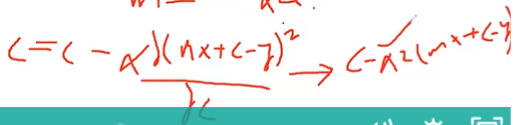 c = c - α ∂(mx+c-y)² / ∂c → c - α 2(mx+c-y)